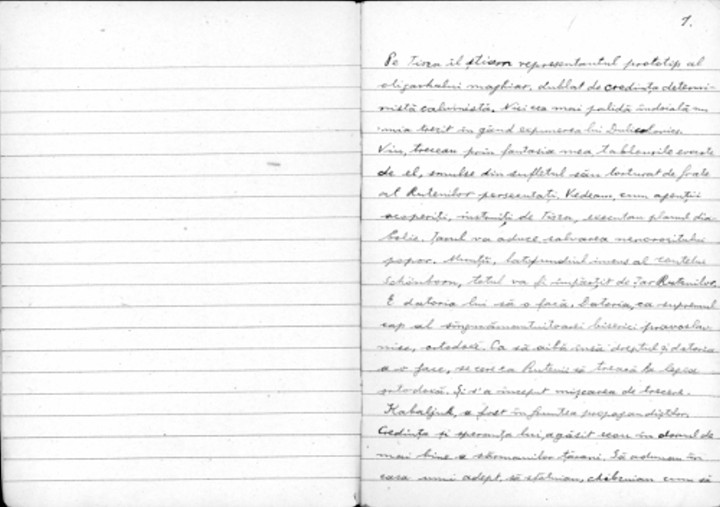 1.
Pe Tisza îl știam reprezentantul prototip al
oligarhului maghiar, dublat de credința determi-
nistă calvinistă. Nici cea mai palidă îndoială nu
mia trezit în gând expunerea lui
Viu, treceau prin fantasia mea, tablourile evocate
de el, smulse din sufletul său torturat de frate
al Rutenilor persecutați. Vedeam, cum agenții
acoperiți, instruiți de Tisza, executau planul dia
bolic. Țarul va aduce salvarea nenorocitului
popor. Munții, latifundiul imens al contelui
Schönborn, totul va fi împărțit de Țar Rutenilor.
E datoria lui să o facă. Datoria, ca supremul
cap al singurei biserici pravoslav-
nice, ortodoxă. Ca să aibă însă dreptul și datoria
a o face, se cere ca Rutenii să treacă la legea
ortodoxă. Și s'a început mișcarea de trecere.
Kabaljuk, a fost în fruntea propagandiștilor.
Credința și speranța lui, agăsit ecou în dorul de
mai bine a sărmanilor țărani. Să adunau în
casa unui adept, să sfătuiau, chibzuiau cum să